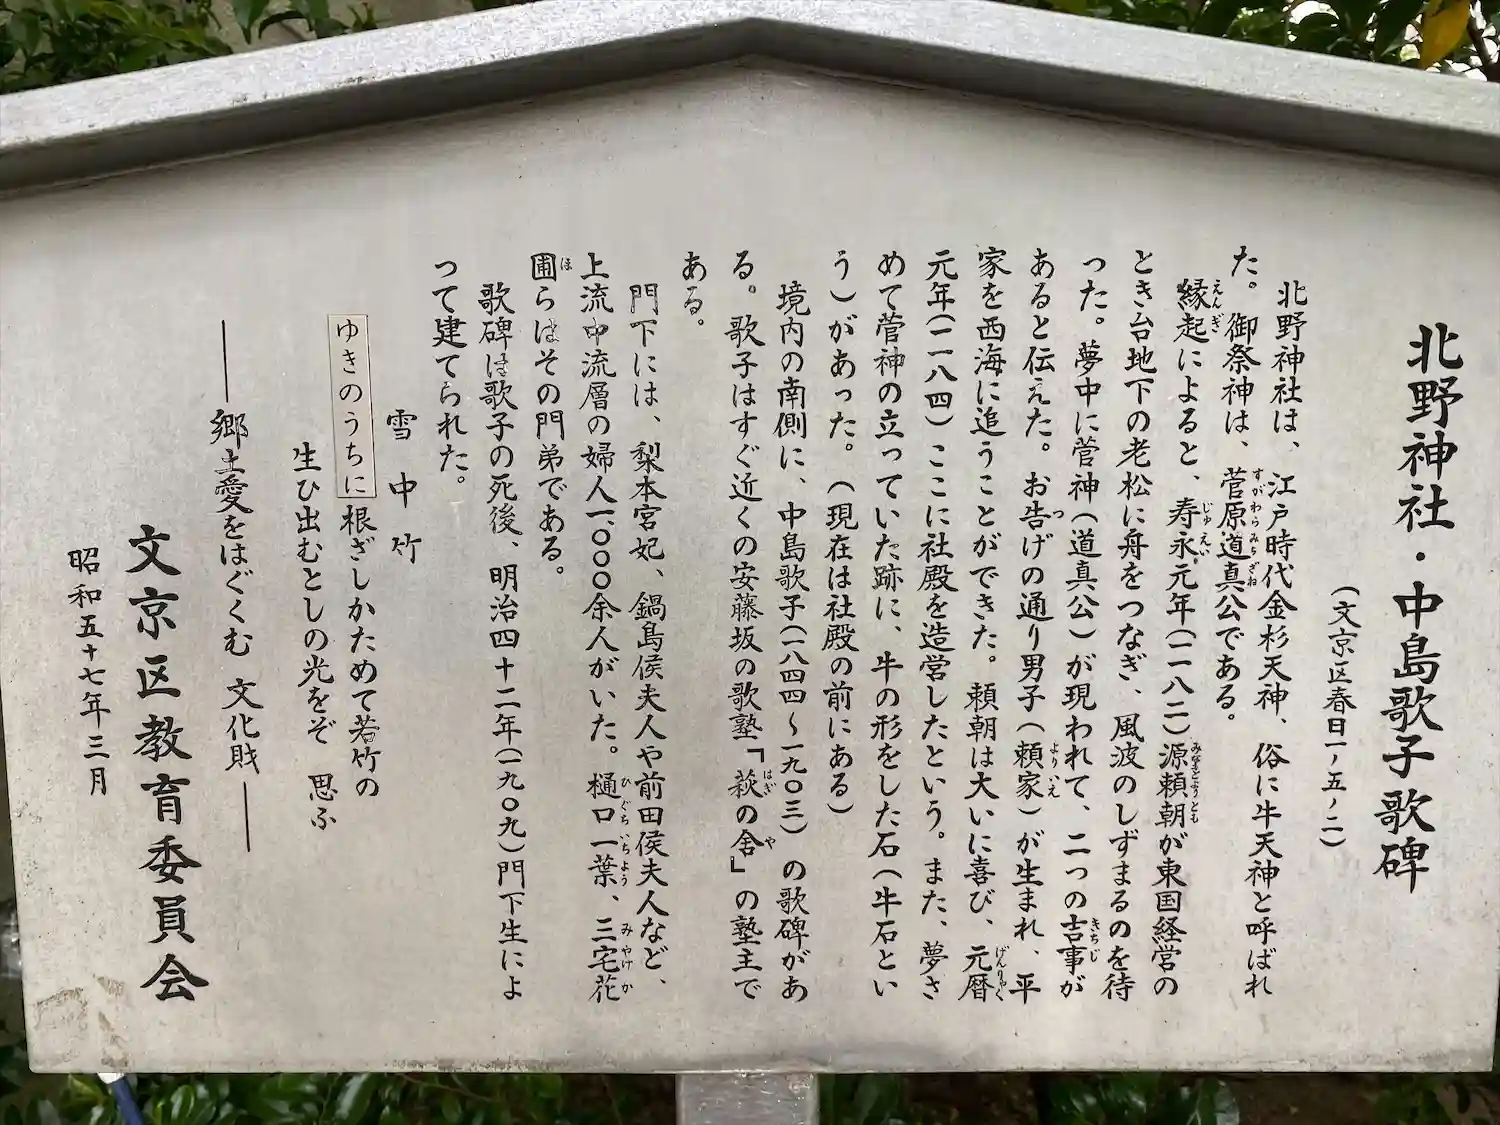 北野神社・中島歌子歌碑
（文京区春日一ノ五ノ二）
北野神社は、江戸時代金杉天神、俗に牛天神と呼ばれ
た。御祭神は、菅原道真公である。
縁起によると、寿永元年（一一八二）源頼朝が東国経営の
とき台地下の老松に舟をつなぎ、風波のしずまるのを待
った。夢中に菅神（道真公）が現われて、二つの吉事が
あると伝えた。お告げの通り男子（頼家）が生まれ、平
家を西海に追うことができた。頼朝は大いに喜び、元暦
元年（一一八四）ここに社殿を造営したという。また、夢さ
めて菅神の立っていた跡に、牛の形をした石（牛石とい
う）があった。（現在は社殿の前にある）
境内の南側に、中島歌子（一八四四～一九〇三）の歌碑があ
る。歌子はすぐ近くの安藤坂の歌塾「萩の舍」の塾主で
ある。
門下には、梨本宮妃、鍋島侯夫人や前田侯夫人など、
上流中流層の婦人一、〇〇〇余人がいた。樋口一葉、三宅花
圃らはその門弟である。
歌碑は歌子の死後、明治四十二年（一九〇九）門下生によ
って建てられた。
雪中竹
ゆきのうちに根ざしかためて若竹の
生ひ出むとしの光をぞ 思ふ
──郷土愛をはぐくむ 文化財──
文京区教育委員会
昭和五十七年三月